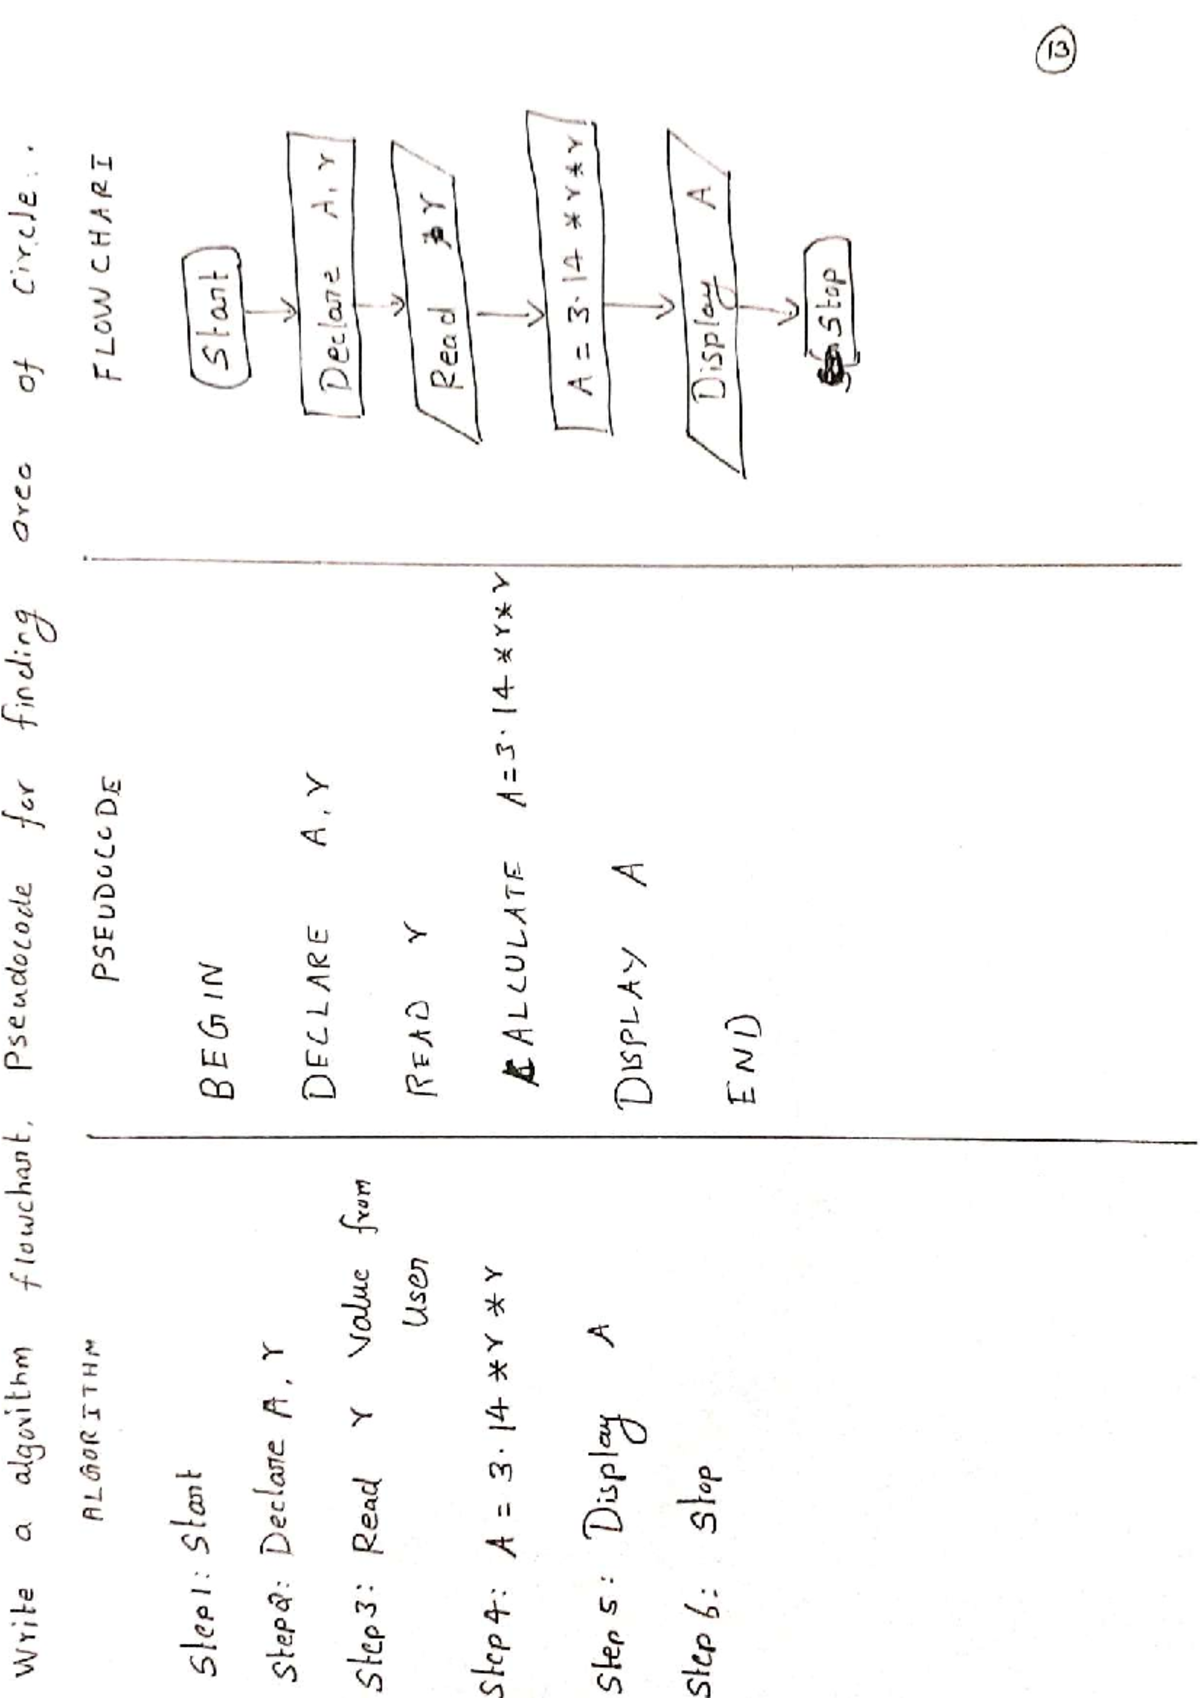 Write a algorithm flowchart, Pseudocode for finding area of Circle..
ALGORITHM
Step1: Start
Step2: Declare A, r
Step3: Read r value from
user
Step4: A = 3.14 * r * r
Step 5: Display A
Step 6: Stop
PSEUDOCODE
BEGIN
DECLARE A, r
READ r
CALCULATE A=3.14 * r * r
DISPLAY A
END
FLOWCHART
Start
Declare A, r
Read r
A = 3.14 * r * r
Display A
Stop
13